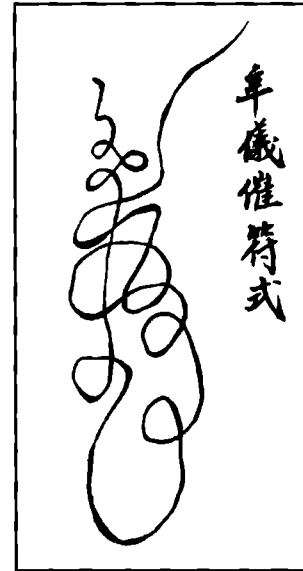 牟儀催符式